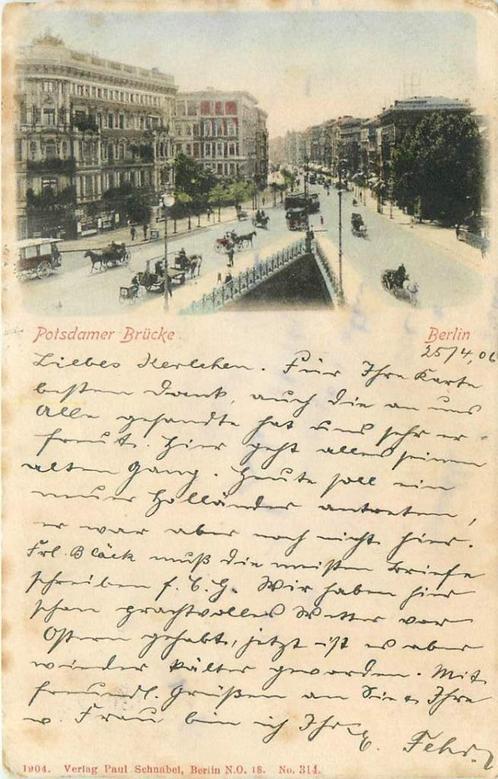 Potsdamer Brücke. Berlin
25/4, 06
Liebes Kerlchen. Für Ihre Karte
besten Dank, auch die an uns
Alle gesandte hat uns sehr er-
freut. Hier geht alles seinen
alten Gang. Heute soll ein
neuer Holländer antreten,
er war aber noch nicht hier.
Frl. Block muß die meisten Briefe
schreiben f. E. G. Wir haben hier
schon prachtvolles Wetter vor
Ostern gehabt, jetzt ist es aber
wieder kälter geworden. Mit
freundl. Grüßen an Sie u. Ihre
w. Frau bin ich Ihr
1904. Verlag Paul Schnabel, Berlin N.O. 18. No. 314.